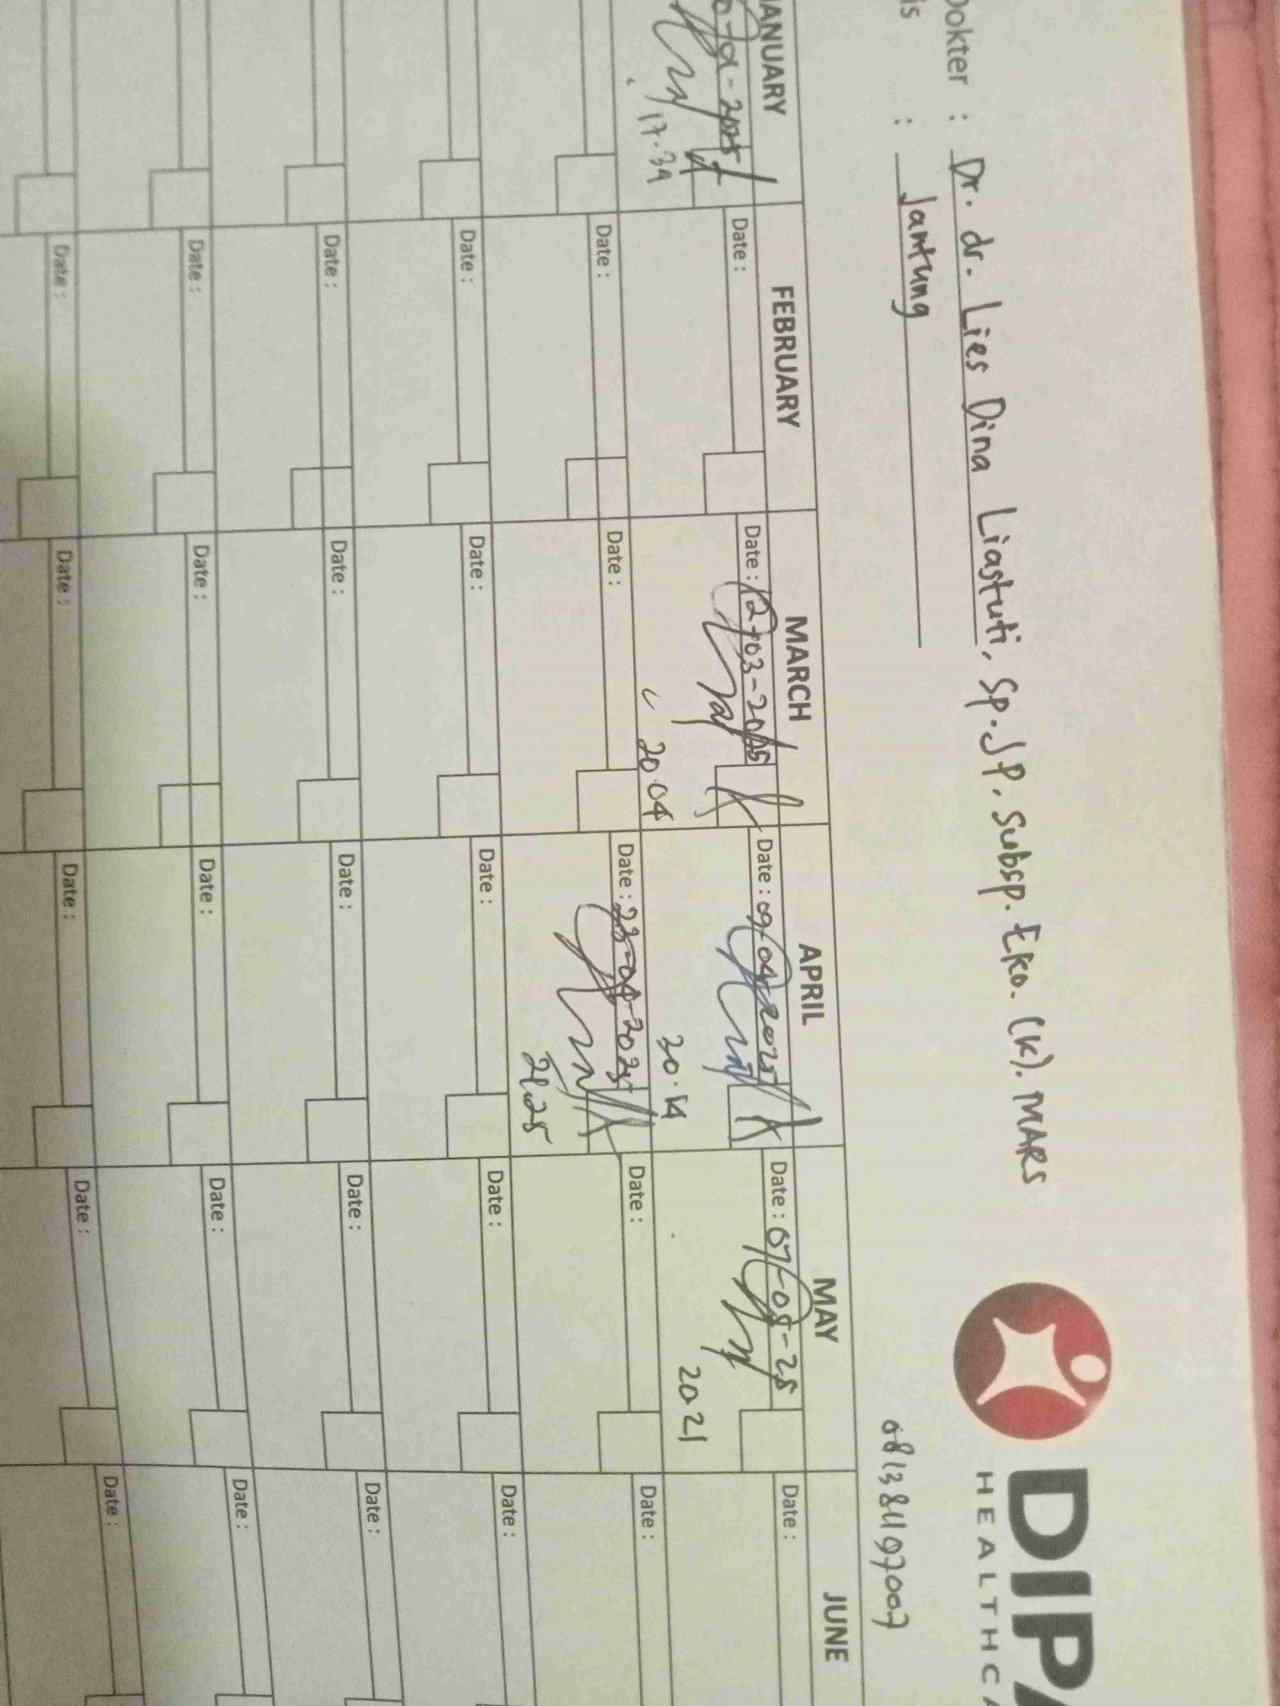 DIPA
HEALTHCA
Dokter : Dr. dr. Lies Dina Liastuti, Sp.JP, Subsp. Eko. (K). MARS
is : Jantung
081384197007
ANUARY FEBRUARY MARCH APRIL MAY JUNE
Date : Date : 12-03-2025 Date : 09-04-2025 Date : 07-05-25 Date :
17.39 20.04 20.14 20.21
Date : Date : Date : 23-04-2025 Date : Date :
21.25
Date : Date : Date : Date : Date :
Date : Date : Date : Date : Date :
Date : Date : Date : Date : Date :
Date : Date : Date : Date : Date :